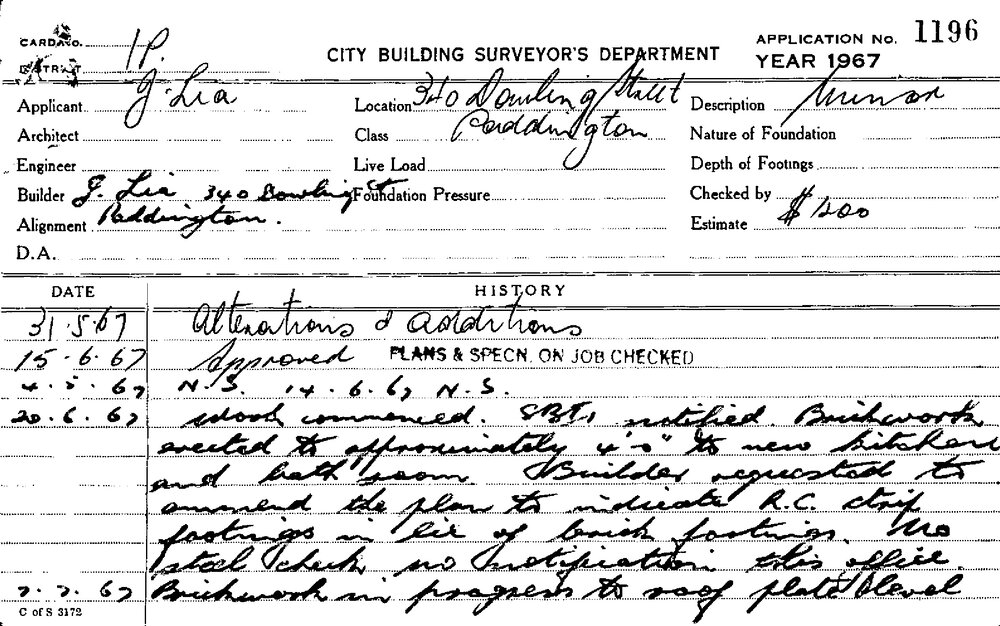 CARD No. 1P.
DISTRICT
CITY BUILDING SURVEYOR'S DEPARTMENT
APPLICATION No. 1196
YEAR 1967
Applicant J. Lia
Location 340 Dowling Street
Description Minor
Architect
Class Paddington
Nature of Foundation
Engineer
Live Load
Depth of Footings
Builder J. Lia 340 Dowling St
Foundation Pressure
Checked by
Alignment Paddington.
Estimate $ 1200
D.A.
DATE HISTORY
31.5.67 Alterations & additions
15.6.67 Approved PLANS & SPECN. ON JOB CHECKED
67 N.S. 14.6.67 N.S.
20.6.67 Work commenced. notified. Brickwork
erected to approximately 4'-0" to new kitchen
and bath room Builder requested to
ammend the plan to indicate R.C. strip
footings in lie of brick footings. No
steel check no notification this office.
7.7.67 Brickwork in progress to roof plate level
C of S 3172